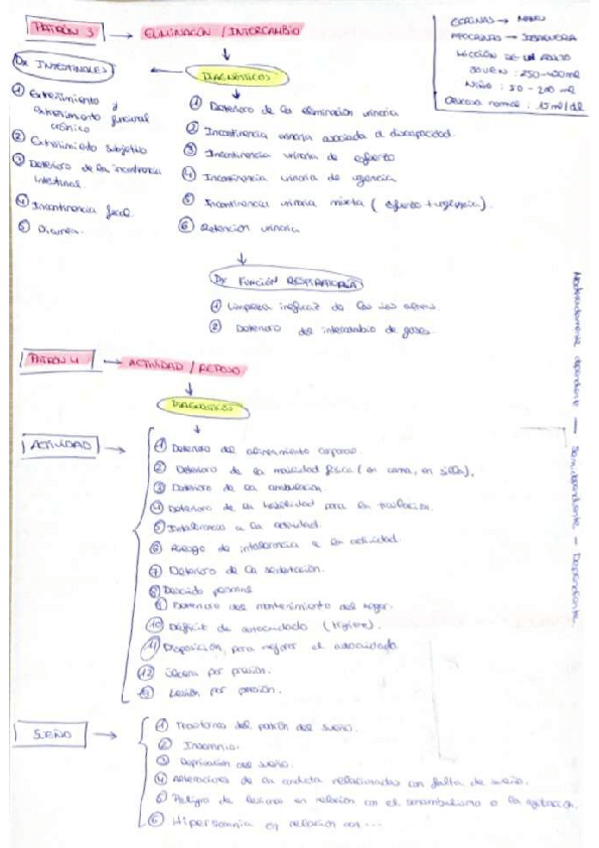 PATRÓN 3 → ELIMINACIÓN / INTERCAMBIO
ECRINAS → MANO
APOCRINAS → SEBÁNDORA
MICCIÓN DE UN ADULTO
JOVEN : 250-400ml
NIÑO : 50 - 200 ml
Diuresis normal : 1,5 ml/día
Dx INTESTINALES
DIAGNÓSTICOS
① Estreñimiento y
estreñimiento funcional
crónico
② Estreñimiento subjetivo
③ Deterioro de la incontinencia
intestinal.
④ Incontinencia fecal.
⑤ Diarrea.
① Deterioro de la eliminación urinaria
② Incontinencia urinaria asociada a discapacidad.
③ Incontinencia urinaria de esfuerzo
④ Incontinencia urinaria de urgencia
⑤ Incontinencia urinaria mixta ( esfuerzo + urgencia ).
⑥ Retención urinaria
Dx FUNCIÓN RESPIRATORIA
① Limpieza ineficaz de las vías aéreas.
② Deterioro del intercambio de gases.
Moderadamente dependiente — Semidependiente — Dependiente.
PATRÓN 4 → ACTIVIDAD / REPOSO
DIAGNÓSTICOS
ACTIVIDAD →
① Deterioro del
② Deterioro de la movilidad física ( en cama, en silla ).
③ Deterioro de la ambulación.
④ Deterioro de la habilidad para la traslación.
⑤ Intolerancia a la actividad.
⑥ Riesgo de intolerancia a la actividad.
⑦ Deterioro de la sedestación.
⑧ Descuido personal
⑨ Deterioro del mantenimiento del hogar.
⑩ Déficit de autocuidado ( Higiene ).
⑪ Disposición para mejorar el autocuidado
⑫ Úlcera por presión.
⑬ Lesión por presión.
SUEÑO →
① Trastorno del patrón del sueño.
② Insomnio.
③ Deprivación del sueño.
④ Alteraciones de la conducta relacionadas con falta de sueño.
⑤ Peligro de lesiones en relación con el sonambulismo o la agitación.
⑥ Hipersomnia en relación con ...